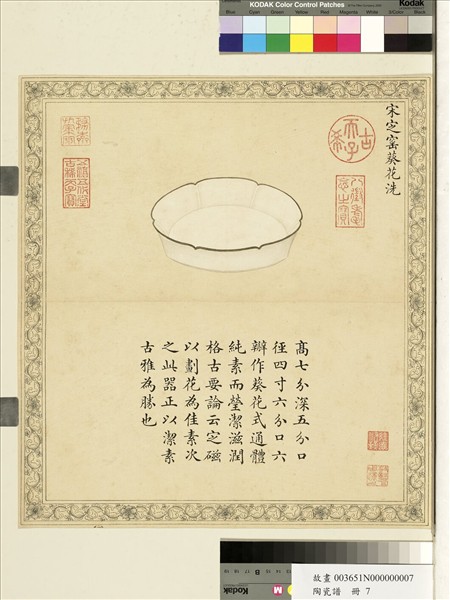 KODAK Color Control Patches
Kodak
Blue Cyan Green Yellow Red Magenta White 3/Color Black
宋定窑葵花洗
古稀天子
八徵耄念之寶
五福五代堂古稀天子寶
高七分深五分口
徑四寸六分口六
瓣作葵花式通體
純素而瑩潔滋潤
格古要論云定磁
以劃花為佳素次
之此器正以潔素
古雅為勝也
故畫 003651N000000007
陶瓷譜 冊 7